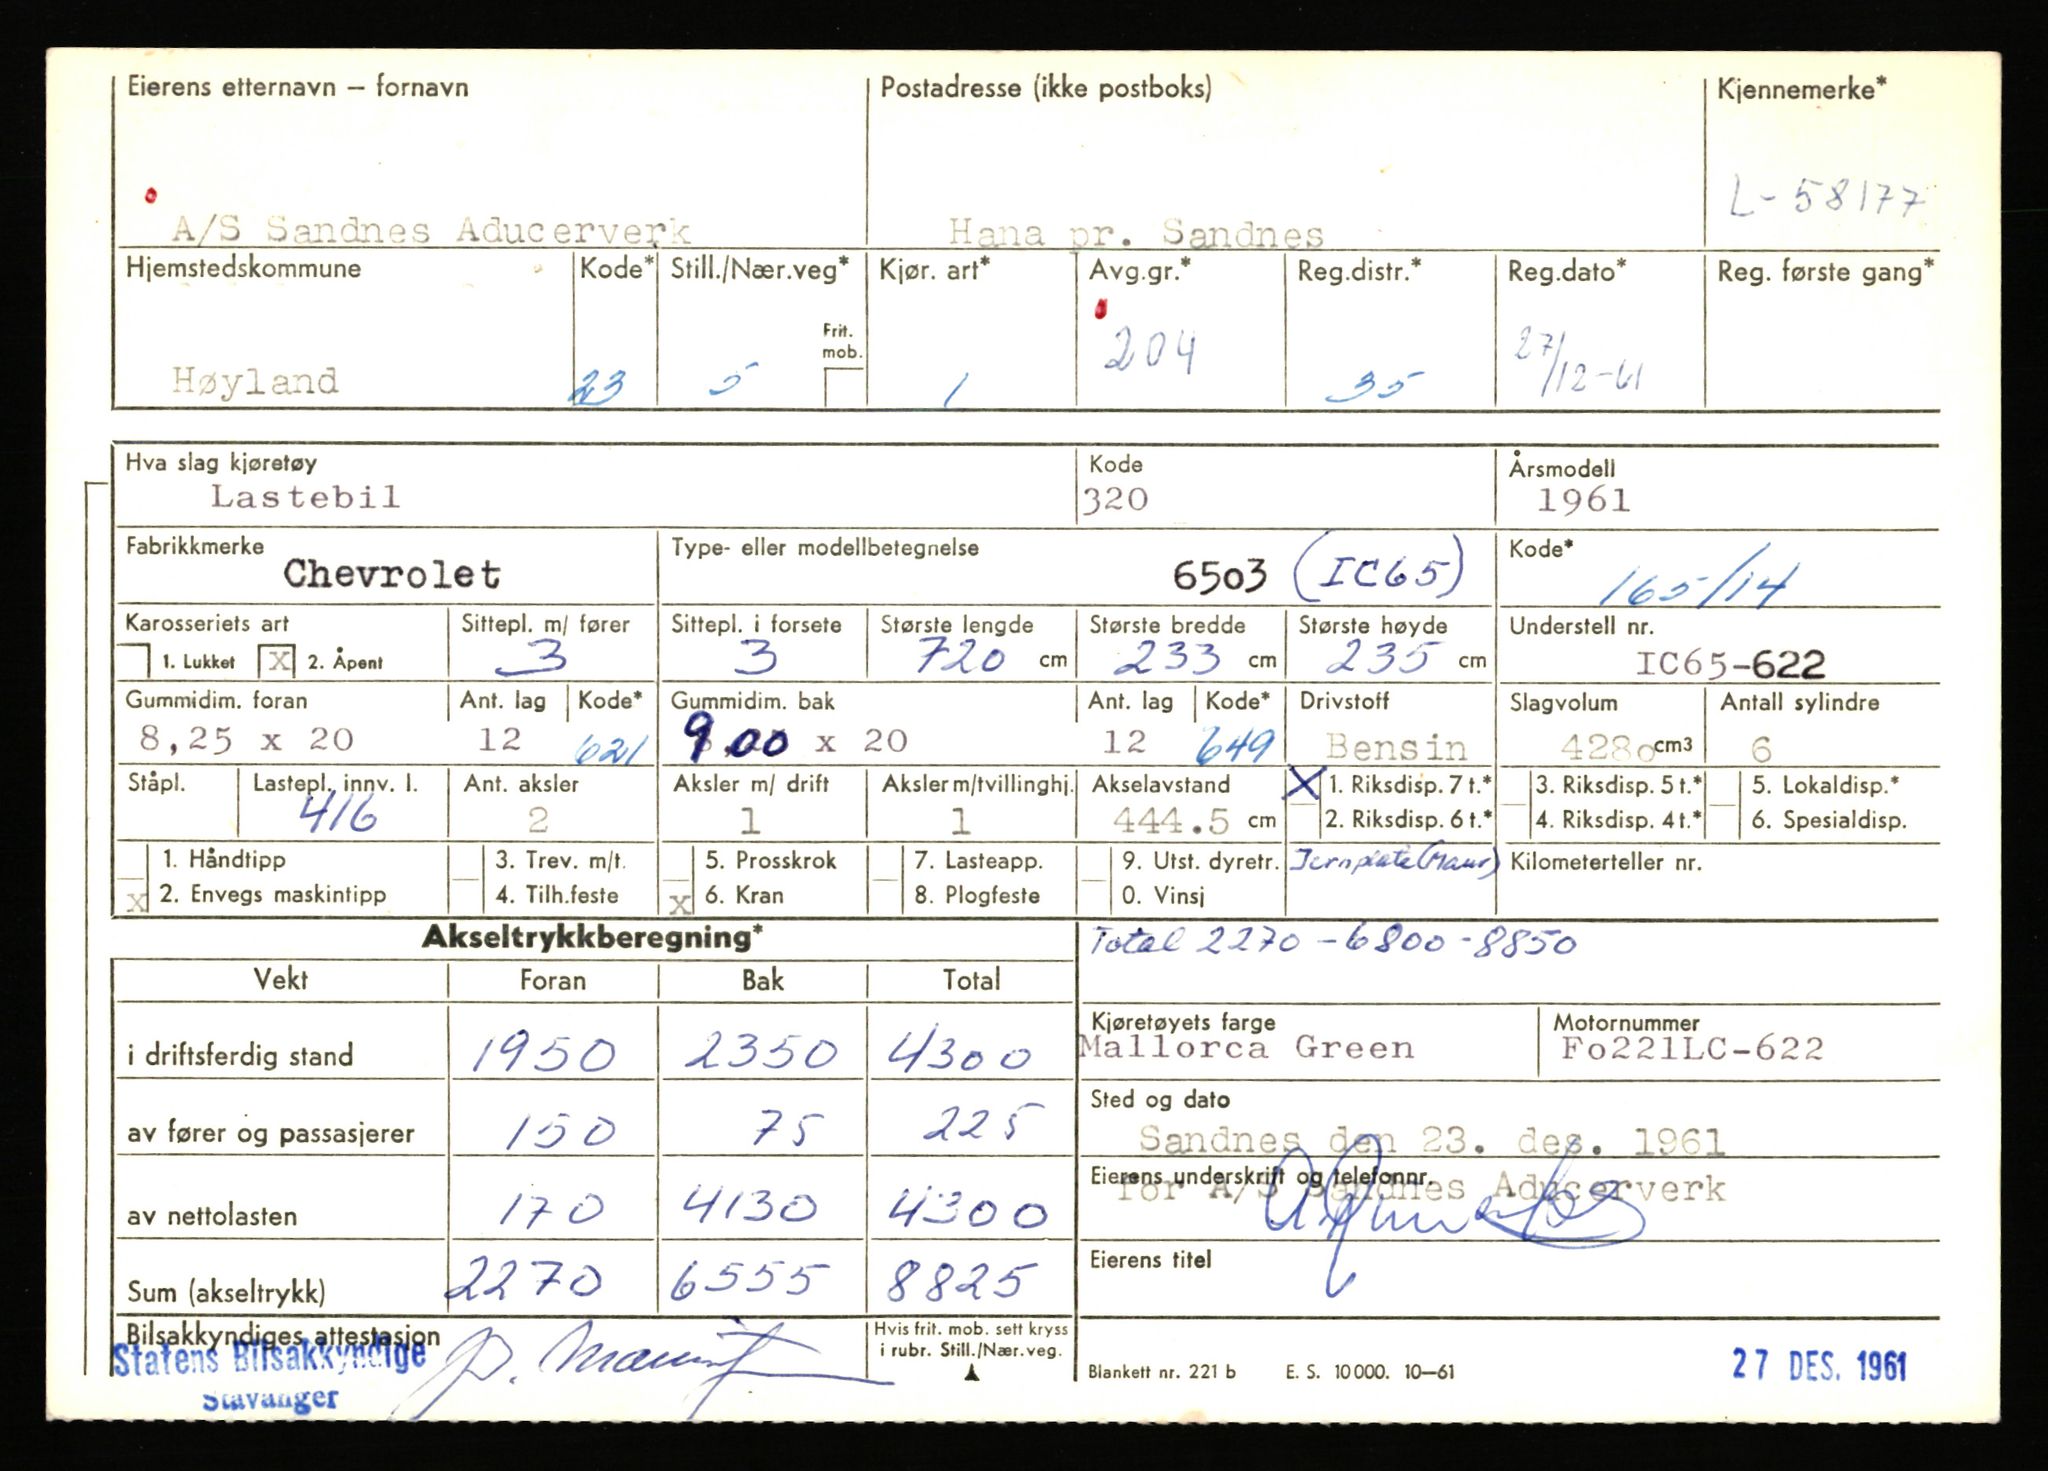 Eierens etternavn – fornavn Postadresse (ikke postboks) Kjennemerke*
A/S Sandnes Aducerverk Hana pr. Sandnes L-58177
Hjemstedskommune Kode* Still./Nær.veg* Kjør. art* Avg.gr.* Reg.distr.* Reg.dato* Reg. første gang*
Frit. mob.
Høyland 23 5 1 204 35 27/12-61
Hva slag kjøretøy Kode Årsmodell
Lastebil 320 1961
Fabrikkmerke Type- eller modellbetegnelse Kode*
Chevrolet 6503 (IC65) 165/14
Karosseriets art Sittepl. m/ fører Sittepl. i forsete Største lengde Største bredde Største høyde Understell nr.
1. Lukket x 2. Åpent 3 3 720 cm 233 cm 235 cm IC65-622
Gummidim. foran Ant. lag Kode* Gummidim. bak Ant. lag Kode* Drivstoff Slagvolum Antall sylindre
8,25 x 20 12 621 9.00 x 20 12 649 Bensin 4280 cm3 6
Ståpl. Lastepl. innv. l. Ant. aksler Aksler m/ drift Aksler m/tvillinghj. Akselavstand X 1. Riksdisp. 7 t.* 3. Riksdisp. 5 t.* 5. Lokaldisp.*
416 2 1 1 444.5 cm 2. Riksdisp. 6 t.* 4. Riksdisp. 4 t.* 6. Spesialdisp.
1. Håndtipp 3. Trev. m/t. 5. Prosskrok 7. Lasteapp. 9. Utst. dyretr. Kilometerteller nr.
x 2. Envegs maskintipp 4. Tilh.feste x 6. Kran 8. Plogfeste 0. Vinsj
Akseltrykkberegning* Total 2270-6800-8850
Vekt Foran Bak Total
Kjøretøyets farge Motornummer
i driftsferdig stand 1950 2350 4300 Mallorca Green Fo221LC-622
Sted og dato
av fører og passasjerer 150 75 225 Sandnes den 23. des. 1961
Eierens underskrift og telefonnr.
for A/S Sandnes Aducerverk
av nettolasten 170 4130 4300
Eierens titel
Sum (akseltrykk) 2270 6555 8825
Bilsakkyndiges attestasjon Hvis frit. mob. sett kryss
i rubr. Still./Nær.veg.
Statens Bilsakkyndige
Stavanger
Blankett nr. 221 b E. S. 10 000. 10–61 27 DES. 1961